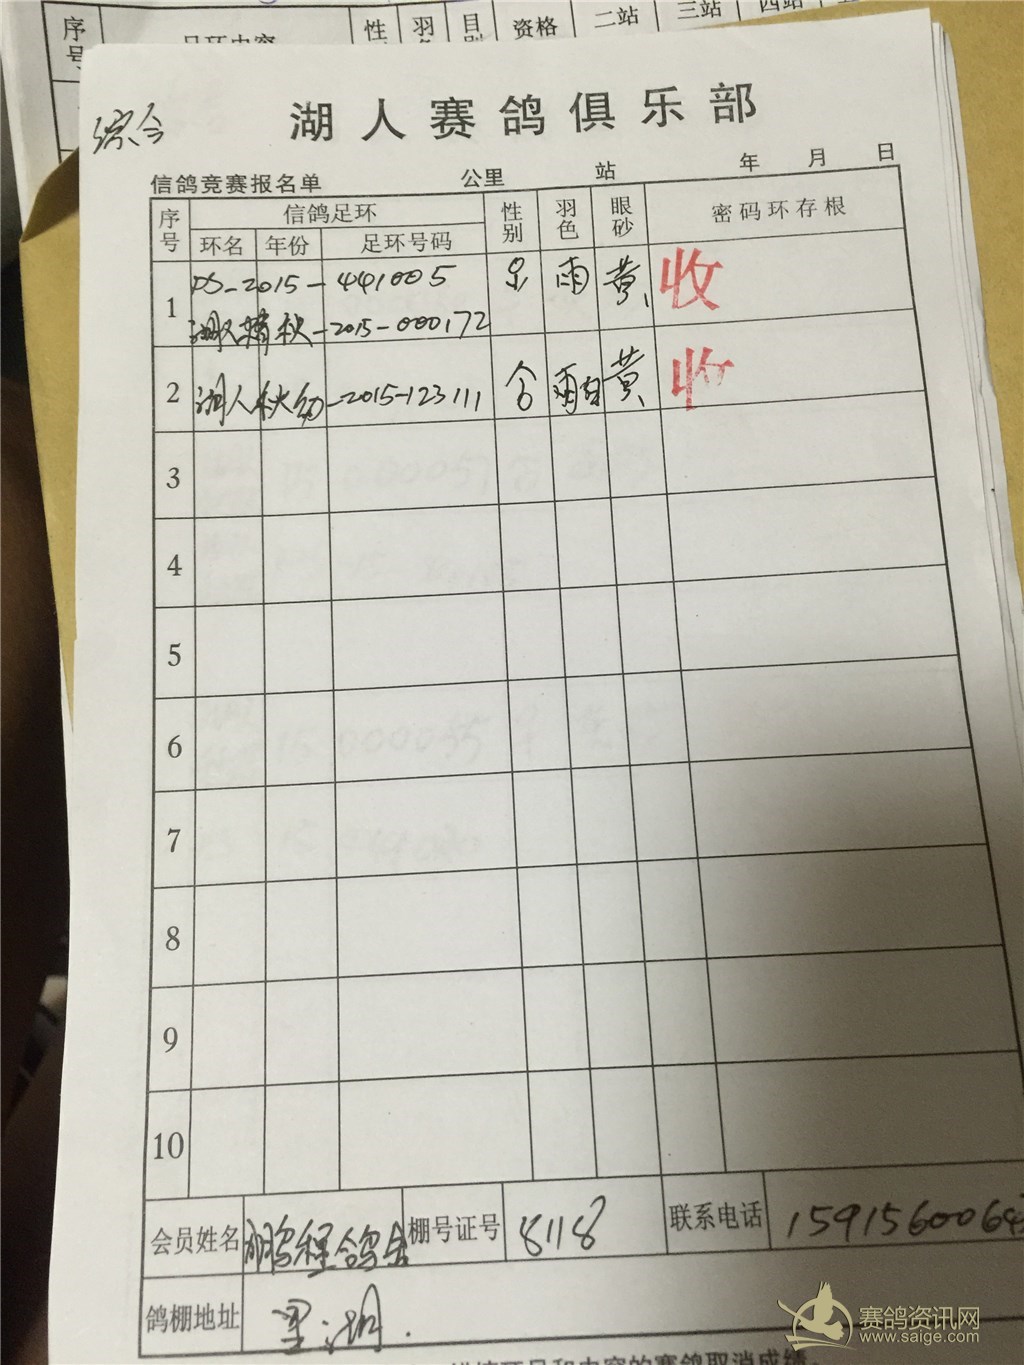 序号 足环内容 性 羽 目 资格 二站 三站 四站
综合
湖人赛鸽俱乐部
信鸽竞赛报名单 公里 站 年 月 日
序号 信鸽足环 性别 羽色 眼砂 密码环存根
环名 年份 足环号码
1 DS-2015-441005 雨 黄 收
-2015-000172
2 湖人秋幼-2015-123111 黄 收
3
4
5
6
7
8
9
10
会员姓名 鹏程鸽舍 棚号证号 8118 联系电话 1591560064
鸽棚地址 里湖.
赛鸽资讯网
www.saige.com